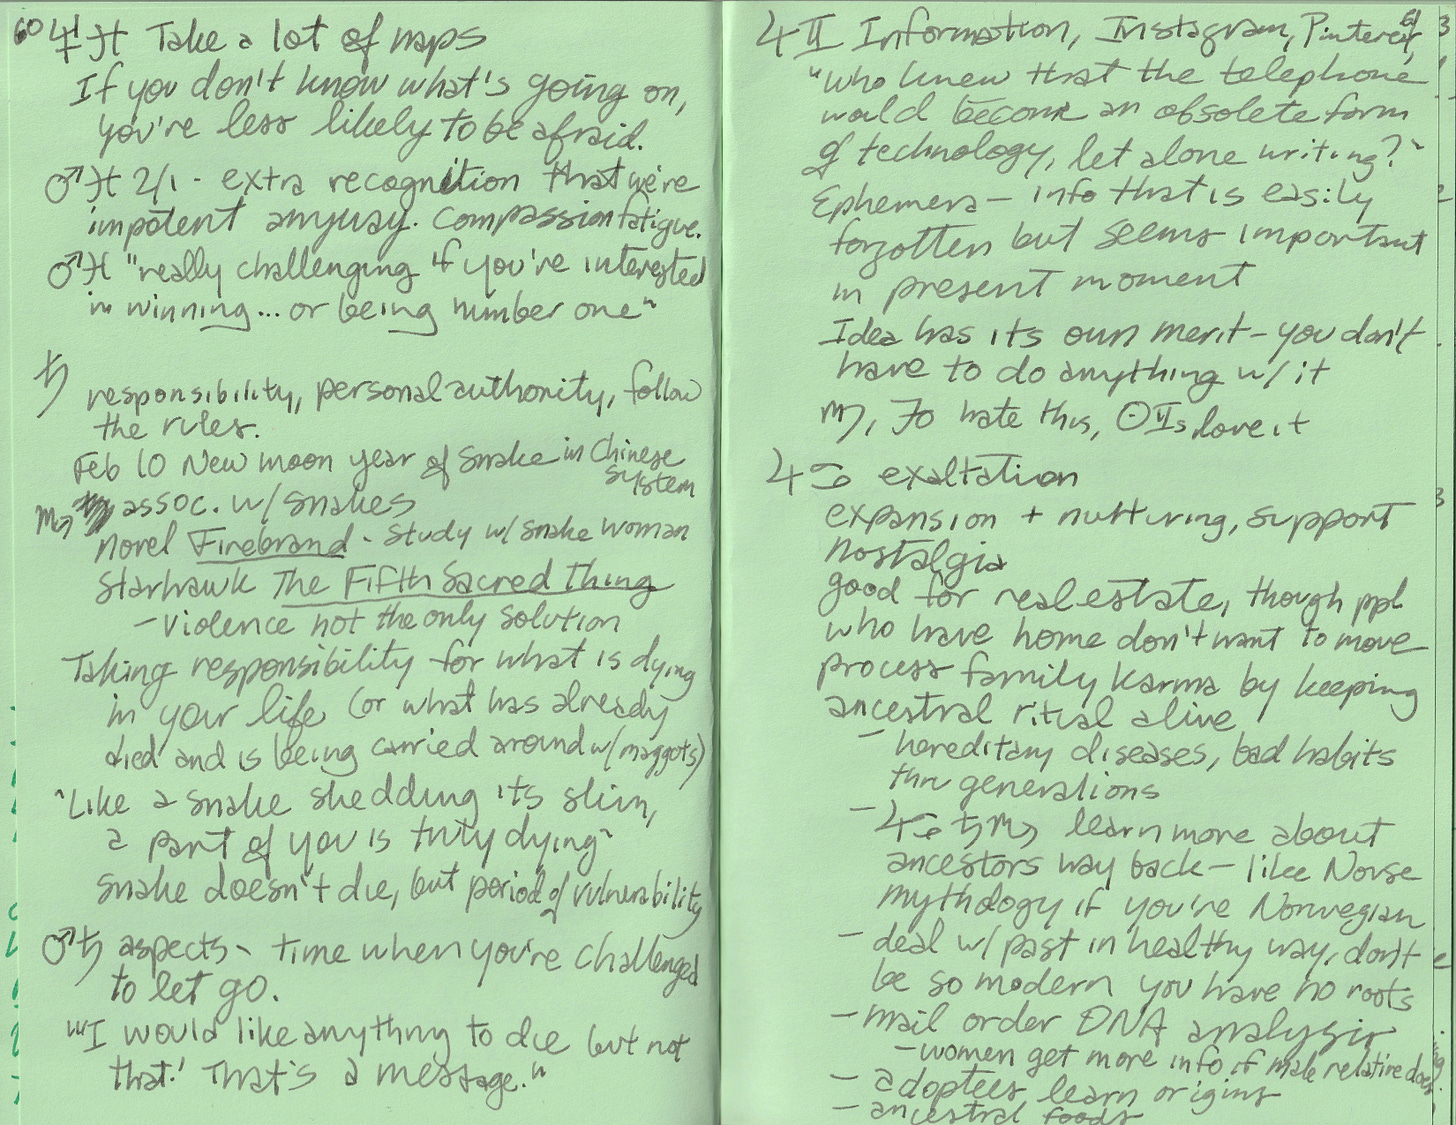 60 ♆♓ Take a lot of naps
If you don't know what's going on,
you're less likely to be afraid.
♂♓ 2/1 - extra recognition that we're
impotent anyway. Compassion fatigue.
♂♓ "really challenging if you're interested
in winning... or being number one"
♄
responsibility, personal authority, follow
the rules.
Feb 10 New moon year of snake in Chinese
system
♏ assoc. w/ snakes
novel Firebrand - study w/ snake woman
Starhawk The Fifth Sacred Thing
- violence not the only solution
Taking responsibility for what is dying
in your life (or what has already
died and is being carried around w/ maggots)
"Like a snake shedding its skin,
a part of you is truly dying"
snake doesn't die, but period of vulnerability
♂♄ aspects - time when you're challenged
to let go.
"'I would like anything to die but not
that!' That's a message."
61
♃♊ Information, Instagram, Pinterest,
"who knew that the telephone
would become an obsolete form
of technology, let alone writing?"
Ephemera - info that is easily
forgotten but seems important
in present moment
Idea has its own merit - you don't
have to do anything w/ it
♏, ♑ hate this, ☉♊s love it
♃♋ exaltation
expansion + nurturing, support
nostalgia
good for real estate, though ppl
who have home don't want to move
process family karma by keeping
ancestral ritual alive
- hereditary diseases, bad habits
thru generations
- ♃♋ ♄♏ learn more about
ancestors way back - like Norse
mythology if you're Norwegian
- deal w/ past in healthy way, don't
be so modern you have no roots
- mail order DNA analysis
- women get more info if male relative does
- adoptees learn origins
- ancestral foods